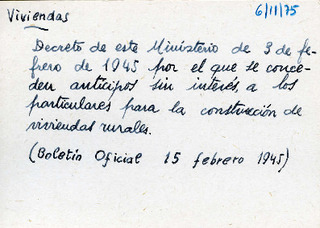 Viviendas
6/11/75
Decreto de este Ministerio de 3 de fe-
frero de 1945 por el que se conce-
den anticipos sin interés, a los
particulares para la construcción de
viviendas rurales.
(Boletín Oficial 15 febrero 1945)